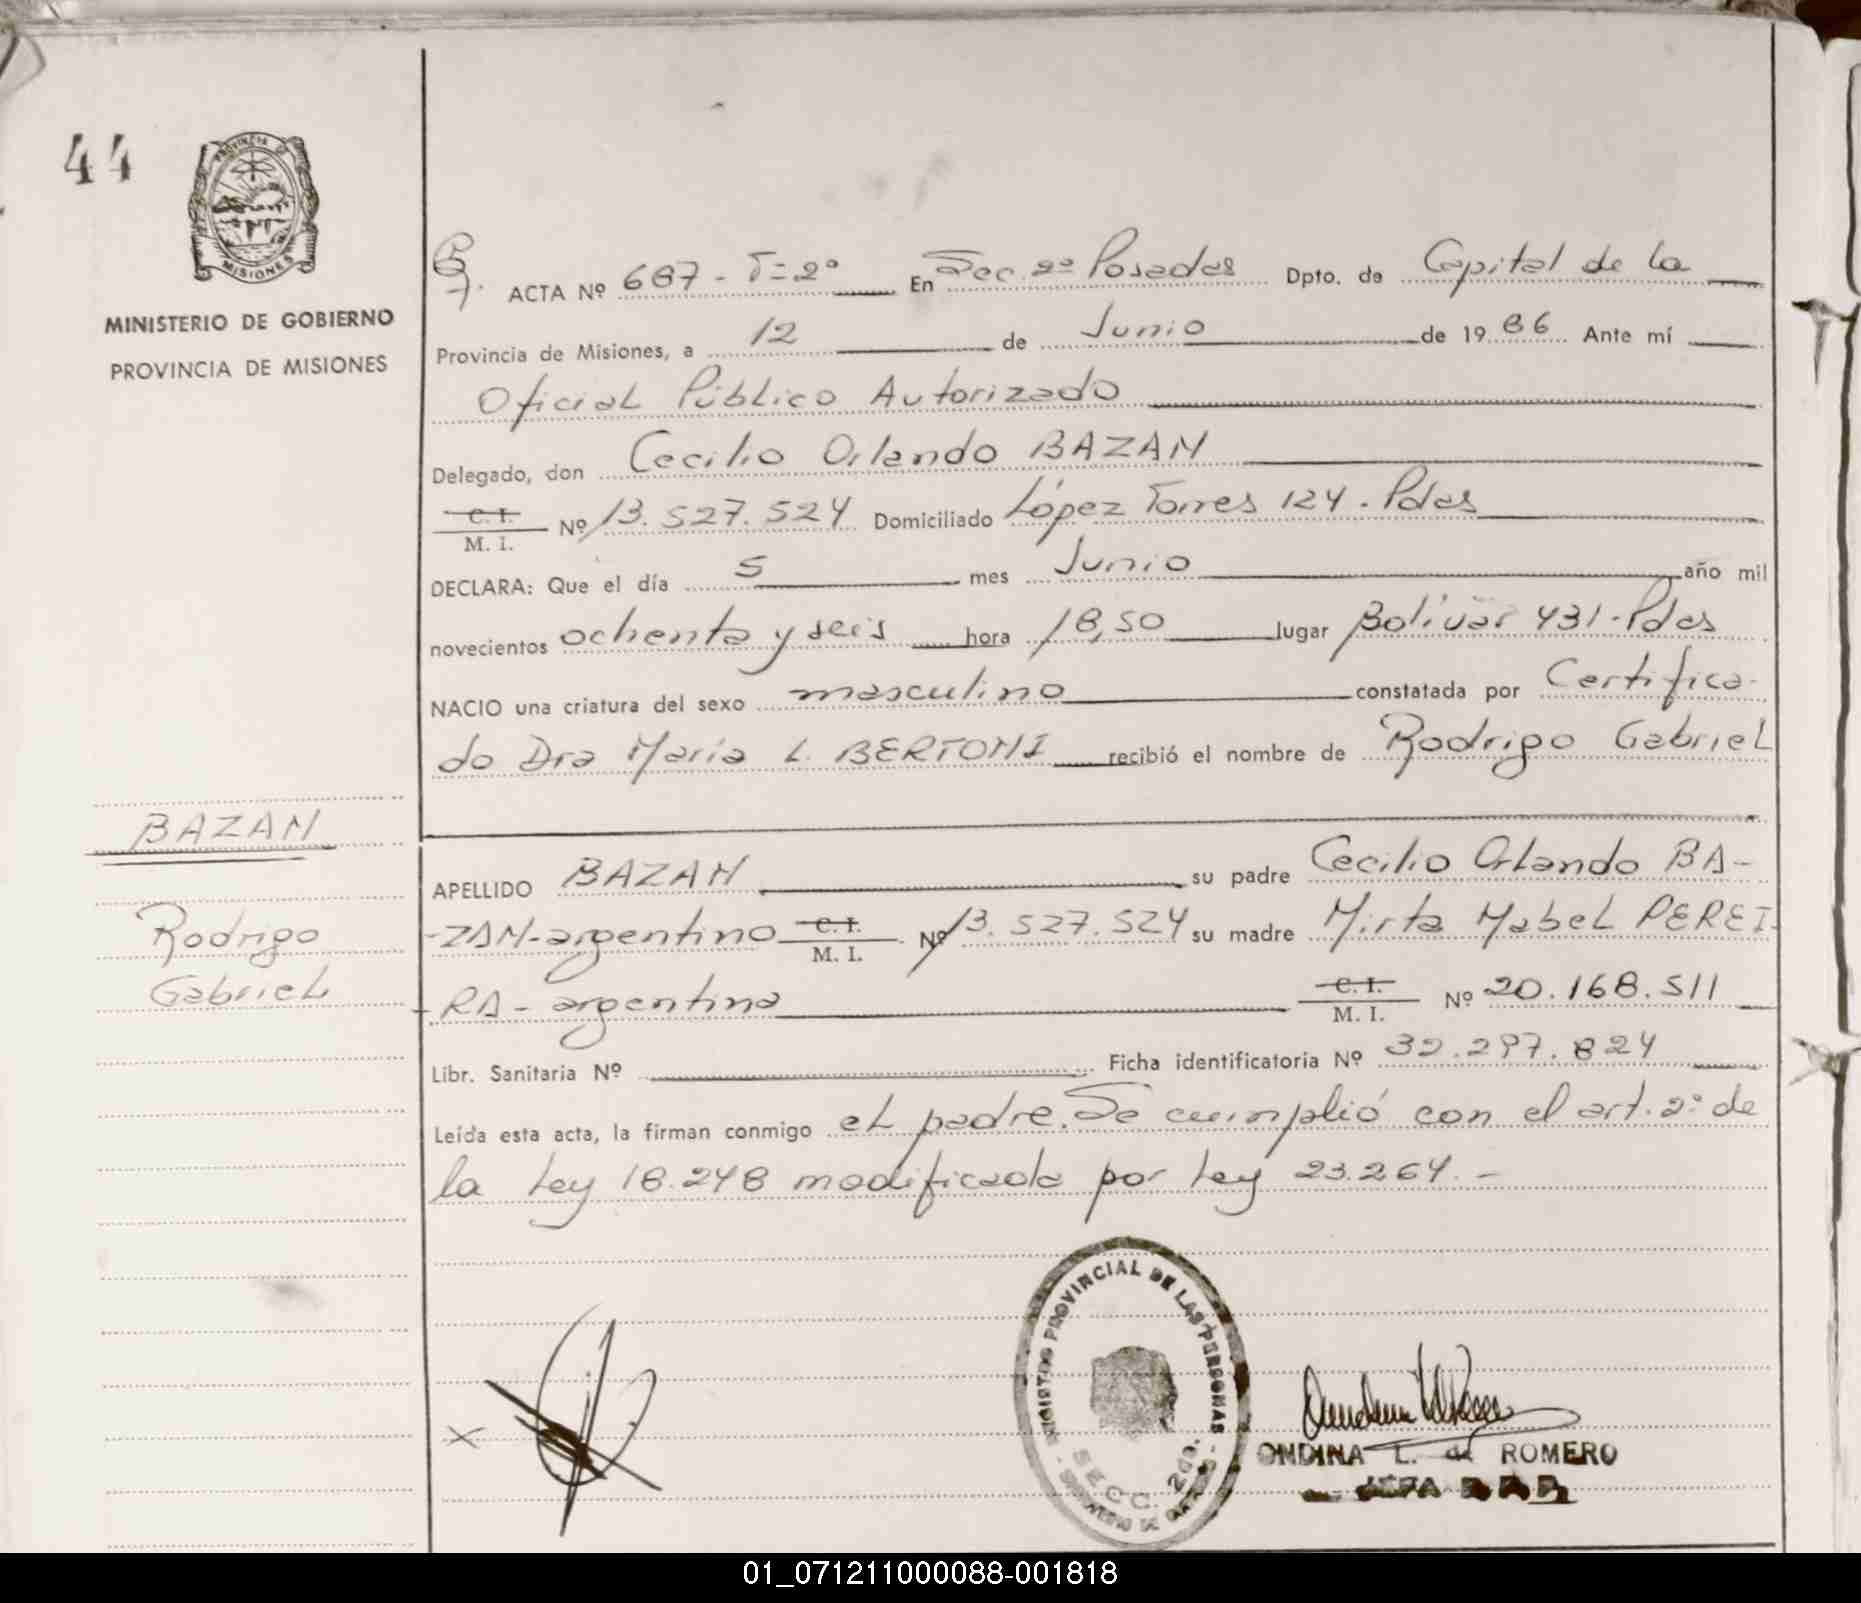 44
PROVINCIA DE
MISIONES
MINISTERIO DE GOBIERNO
PROVINCIA DE MISIONES
ACTA Nº 687 - T=2º En Sec. 2ª Posadas Dpto. de Capital de la
Provincia de Misiones, a 12 de Junio de 1986 Ante mí
Oficial Público Autorizado
Delegado, don Cecilio Orlando BAZAN
C. I.
M. I. Nº 13.527.524 Domiciliado López Torres 124. Pdas
DECLARA: Que el día 5 mes Junio año mil
novecientos ochenta y seis hora 18,50 lugar Bolívar 431-Pdas
NACIO una criatura del sexo masculino constatada por Certifica-
do Dra María L. BERTONI recibió el nombre de Rodrigo Gabriel
BAZAN
Rodrigo
Gabriel
APELLIDO BAZAN su padre Cecilio Orlando BA-
-ZAN-argentino C. I. M. I. Nº 13.527.524 su madre Mirta Mabel PEREI-
-RA- argentina C. I. M. I. Nº 20.168.511
Libr. Sanitaria Nº Ficha identificatoria Nº 32.297.824
Leída esta acta, la firman conmigo el padre. Se cumplió con el art. 2º de
la Ley 18.248 modificada por Ley 23.264.-
X
REGISTRO PROVINCIAL DE LAS PERSONAS
SECC. 2da.
ONDINA L. de ROMERO
JEFA
01_071211000088-001818